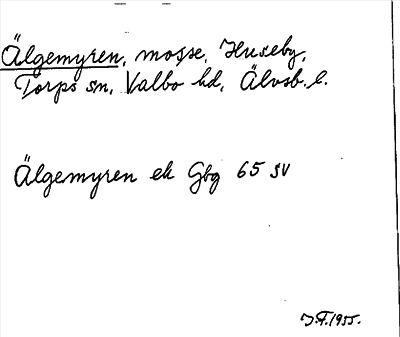 Älgemyren, mosse, Huseby,
Torps sn, Valbo hd, Älvsb. l.
Älgemyren ek Gbg 65 SV
J.F. 1955.